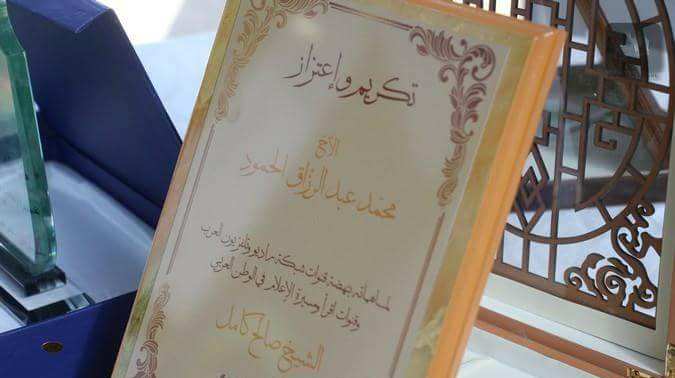 تكريم وإعتزاز
الأخ
محمد عبد الرزاق الحمود
لمساهماته بنهضة قنوات شبكة راديو وتلفزيون العرب
وقنوات اقرأ ومسيرة الإعلام في الوطن العربي
الشيخ صالح كامل